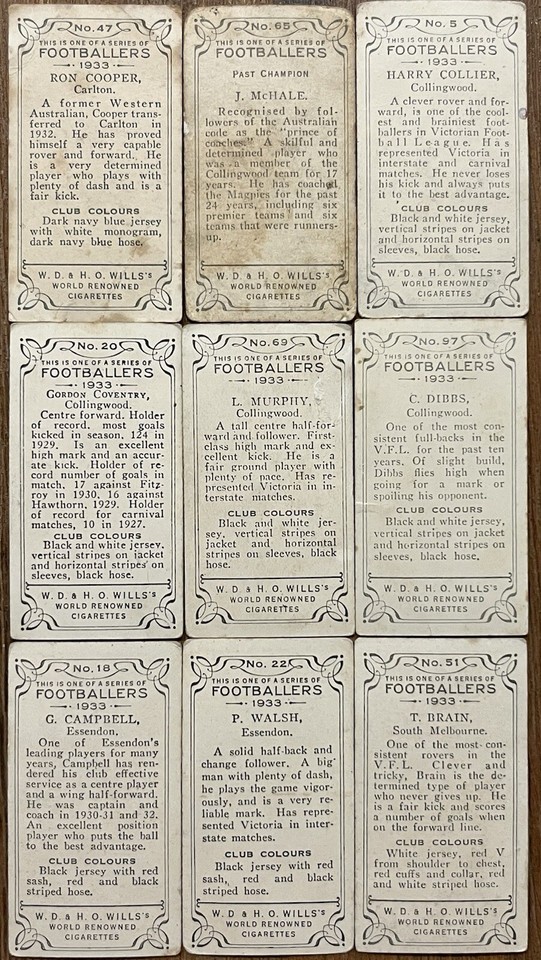 No. 47
THIS IS ONE OF A SERIES OF
FOOTBALLERS
1933
RON COOPER,
Carlton.
A former Western
Australian, Cooper trans-
ferred to Carlton in
1932. He has proved
himself a very capable
rover and forward. He
is a very determined
player who plays with
plenty of dash and is a
fair kick.
CLUB COLOURS
Dark navy blue jersey
with white monogram,
dark navy blue hose.
W. D. & H. O. WILLS's
WORLD RENOWNED
CIGARETTES
No. 65
THIS IS ONE OF A SERIES OF
FOOTBALLERS
1933
PAST CHAMPION
J. McHALE.
Recognised by fol-
lowers of the Australian
code as the "prince of
coaches." A skilful and
determined player who
was a member of the
Collingwood team for 17
years. He has coached
the Magpies for the past
24 years, including six
premier teams and six
teams that were runners-
up.
W. D. & H. O. WILLS's
WORLD RENOWNED
CIGARETTES
No. 5
THIS IS ONE OF A SERIES OF
FOOTBALLERS
1933
HARRY COLLIER,
Collingwood.
A clever rover and for-
ward, is one of the cool-
est and brainiest foot-
ballers in Victorian Foot-
ball League. Has
represented Victoria in
interstate and carnival
matches. He never loses
his kick and always puts
it to the best advantage.
CLUB COLOURS
Black and white jersey,
vertical stripes on jacket
and horizontal stripes on
sleeves, black hose.
W. D. & H. O. WILLS's
WORLD RENOWNED
CIGARETTES
No. 20
THIS IS ONE OF A SERIES OF
FOOTBALLERS
1933
GORDON COVENTRY,
Collingwood.
Centre forward. Holder
of record. most goals
kicked in season, 124 in
1929. Is an excellent
high mark and an accur-
ate kick. Holder of re-
cord number of goals in
match, 17 against Fitz-
roy in 1930, 16 against
Hawthorn, 1929. Holder
of record for carnival
matches, 10 in 1927.
CLUB COLOURS
Black and white jersey,
vertical stripes on jacket
and horizontal stripes on
sleeves, black hose.
W. D. & H. O. WILLS's
WORLD RENOWNED
CIGARETTES
No. 69
THIS IS ONE OF A SERIES OF
FOOTBALLERS
1933
L. MURPHY,
Collingwood.
A tall centre half-for-
ward and follower. First-
class high mark and ex-
cellent kick. He is a
fair ground player with
plenty of pace. Has re-
presented Victoria in in-
terstate matches.
CLUB COLOURS
Black and white jer-
sey, vertical stripes on
jacket and horizontal
stripes on sleeves, black
hose.
W. D. & H. O. WILLS's
WORLD RENOWNED
CIGARETTES
No. 97
THIS IS ONE OF A SERIES OF
FOOTBALLERS
1933
C. DIBBS,
Collingwood.
One of the most con-
sistent full-backs in the
V.F.L. for the past ten
years. Of slight build,
Dibbs flies high when
going for a mark or
spoiling his opponent.
CLUB COLOURS
Black and white jersey,
vertical stripes on jacket
and horizontal stripes on
sleeves, black hose.
W. D. & H. O. WILLS's
WORLD RENOWNED
CIGARETTES
No. 18
THIS IS ONE OF A SERIES OF
FOOTBALLERS
1933
G. CAMPBELL,
Essendon.
One of Essendon's
leading players for many
years, Campbell has ren-
dered his club effective
service as a centre player
and a wing half-forward.
He was captain and
coach in 1930-31 and 32.
An excellent position
player who puts the ball
to the best advantage.
CLUB COLOURS
Black jersey with red
sash, red and black
striped hose.
W. D. & H. O. WILLS's
WORLD RENOWNED
CIGARETTES
No. 22
THIS IS ONE OF A SERIES OF
FOOTBALLERS
1933
P. WALSH,
Essendon.
A solid half-back and
change follower. A big
man with plenty of dash,
he plays the game vigor-
ously, and is a very re-
liable mark. Has repre-
sented Victoria in inter-
state matches.
CLUB COLOURS
Black jersey with red
sash, red and black
striped hose.
W. D. & H. O. WILLS's
WORLD RENOWNED
CIGARETTES
No. 51
THIS IS ONE OF A SERIES OF
FOOTBALLERS
1933
T. BRAIN,
South Melbourne.
One of the most con-
sistent rovers in the
V.F.L. Clever and
tricky, Brain is the de-
termined type of player
who never gives up. He
is a fair kick and scores
a number of goals when
on the forward line.
CLUB COLOURS
White jersey, red V
from shoulder to chest,
red cuffs and collar, red
and white striped hose.
W. D. & H. O. WILLS's
WORLD RENOWNED
CIGARETTES